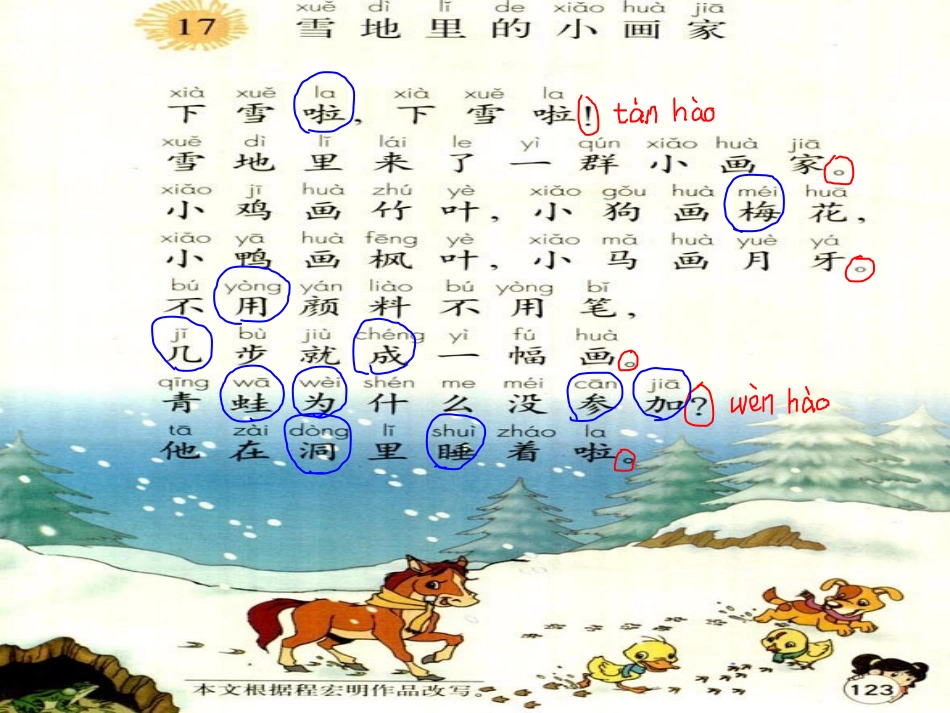 xuě dì lǐ de xiǎo huà jiā
17 雪地里的小画家
xià xuě la xià xuě la
下雪啦，下雪啦！ tàn hào
xuě dì lǐ lái le yì qún xiǎo huà jiā
雪地里来了一群小画家。
xiǎo jī huà zhú yè xiǎo gǒu huà méi huā
小鸡画竹叶，小狗画梅花，
xiǎo yā huà fēng yè xiǎo mǎ huà yuè yá
小鸭画枫叶，小马画月牙。
bú yòng yán liào bú yòng bǐ
不用颜料不用笔，
jǐ bù jiù chéng yì fú huà
几步就成一幅画。
qīng wā wèi shén me méi cān jiā
青蛙为什么没参加？ wèn hào
tā zài dòng lǐ shuì zháo la
他在洞里睡着啦。
本文根据程宏明作品改写。
123